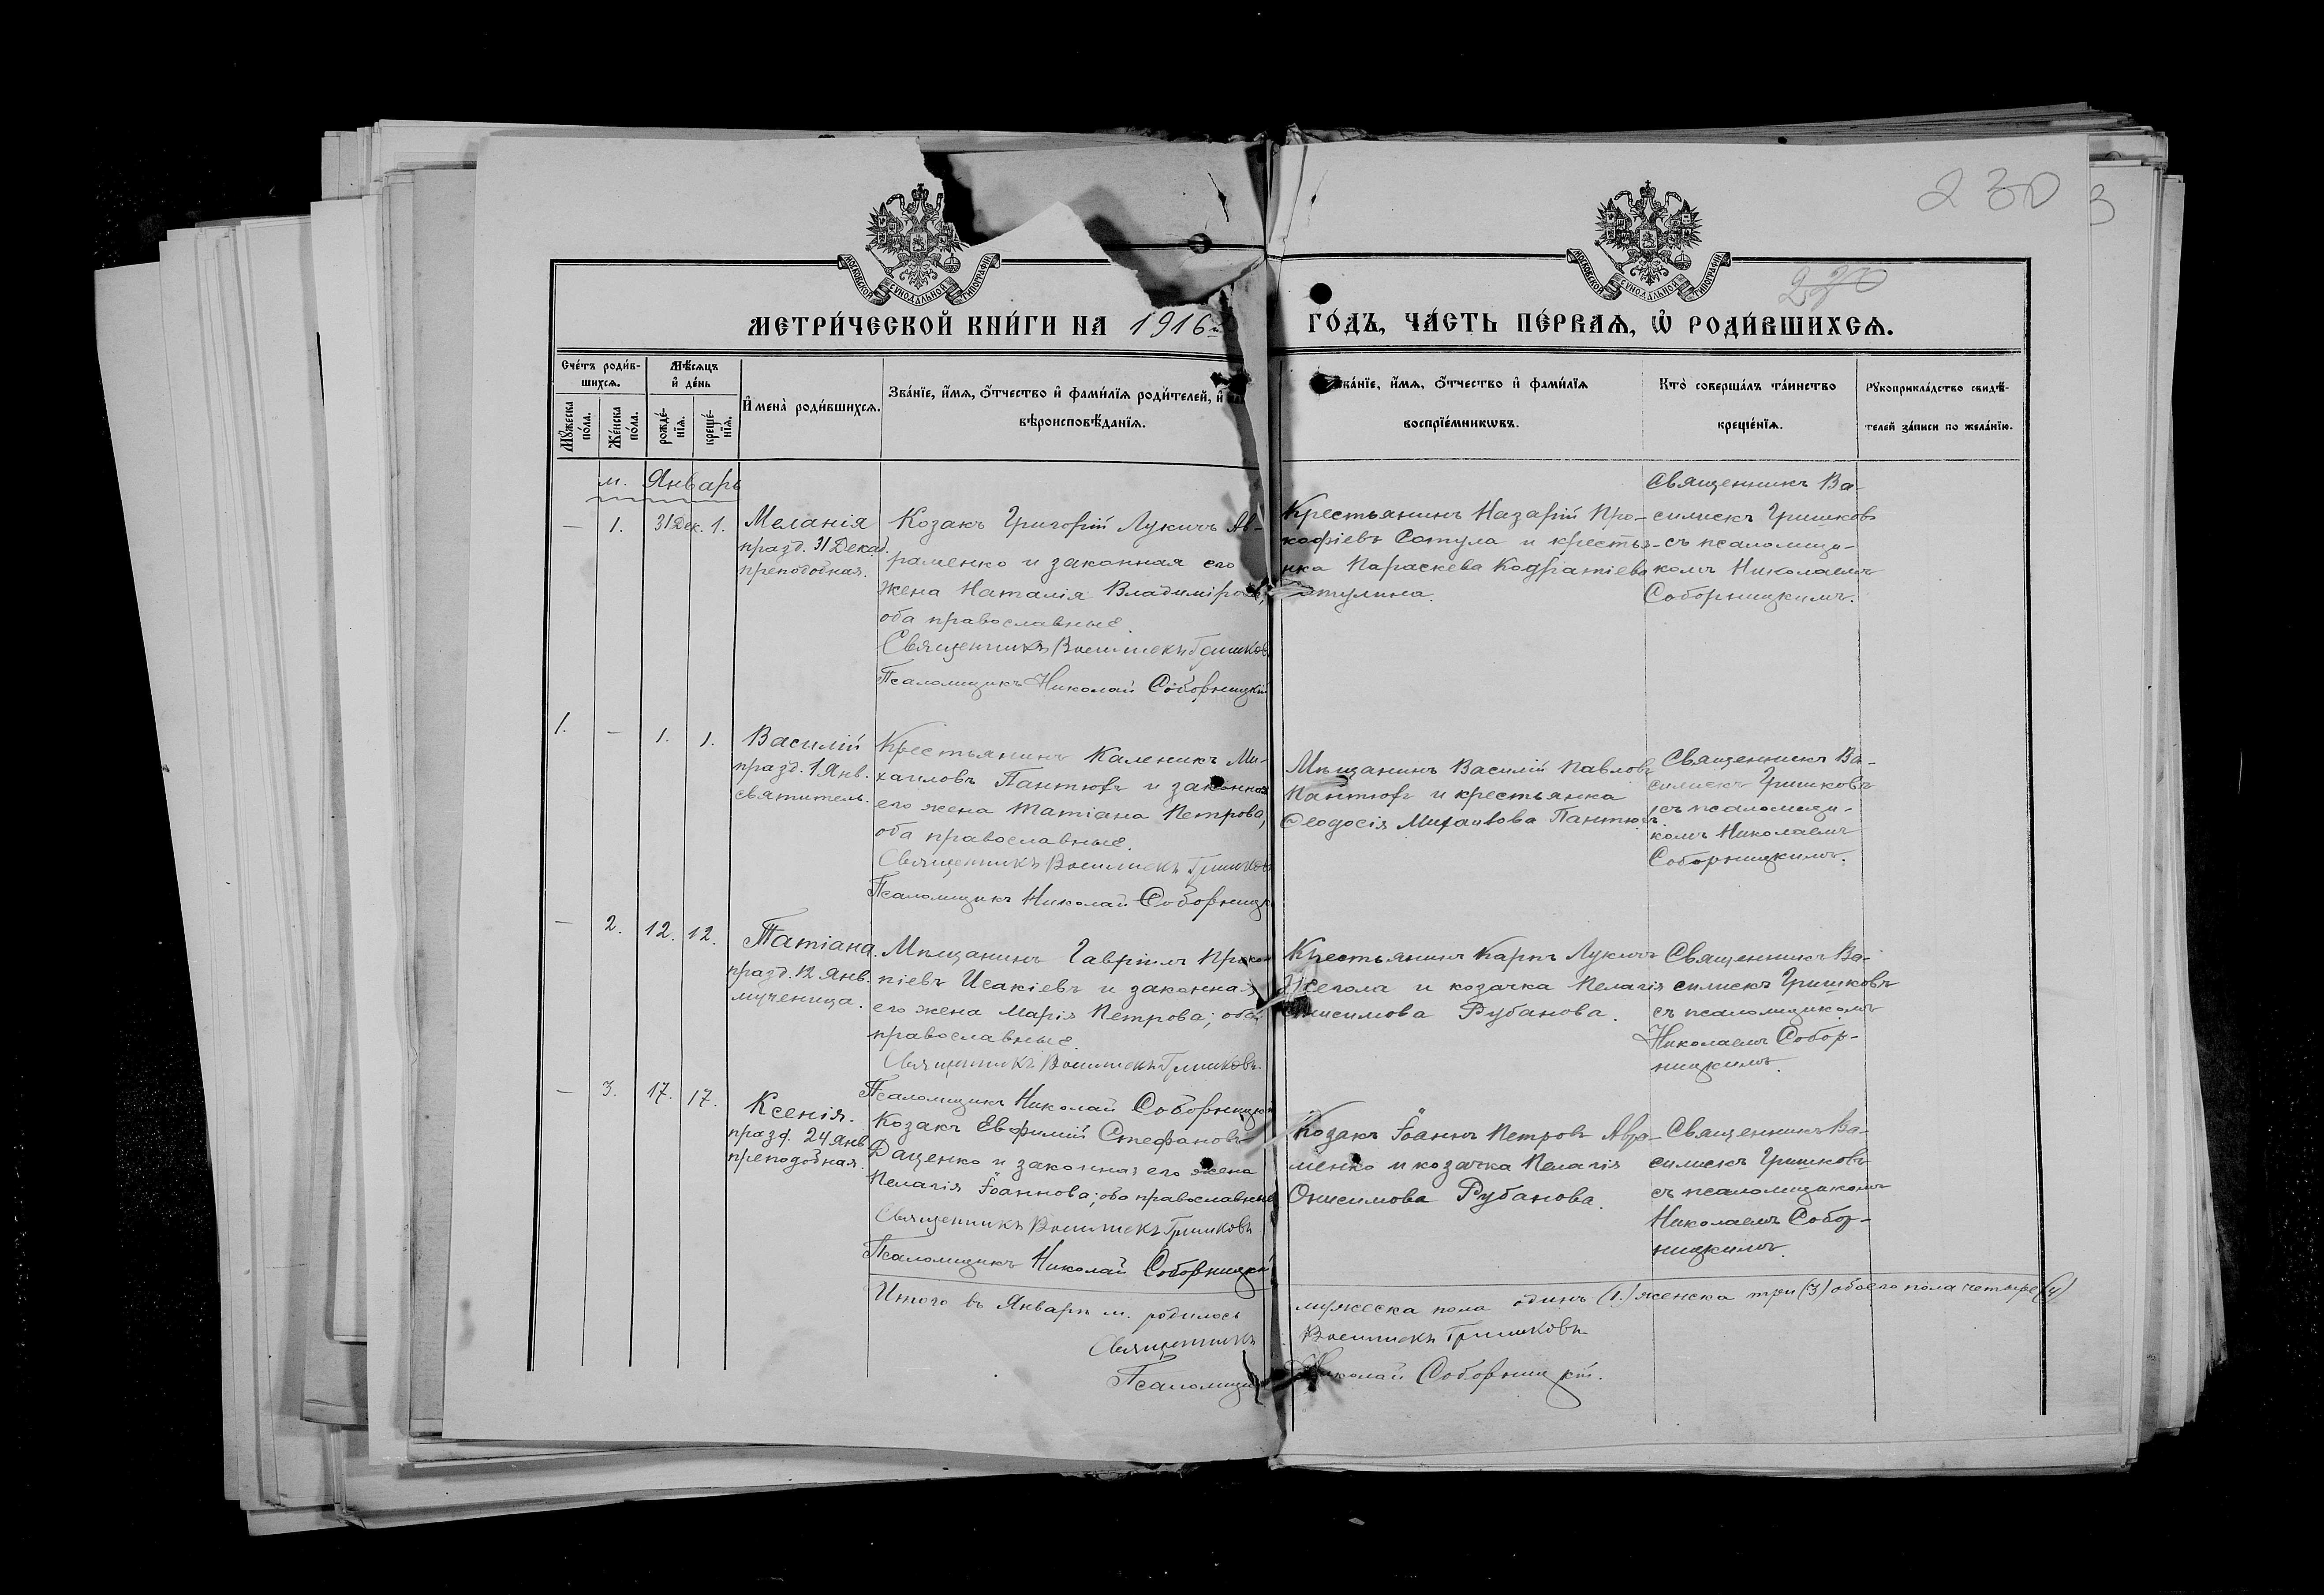 230
3
МОСКОВСКОЙ СѴНОДАЛЬНОЙ ТИПОГРАФІИ
МОСКОВСКОЙ СѴНОДАЛЬНОЙ ТИПОГРАФІИ
МЕТРИ́ЧЕСКОЙ КНИ́ГИ НА 1916
ГО́ДЪ, ЧА́СТЬ ПЕ́РВАѦ, Ѡ҆ РОДИ́ВШИХСѦ.
Сче́тъ роди́в-
шихсѧ.
Мꙋ́жеска по́ла.
Же́нска по́ла.
Мѣ́сѧцъ
и҆ де́нь
рожде́-
нїѧ.
креще́-
нїѧ.
И҆мена̀ роди́вшихсѧ.
Зва́нїе, и҆́мѧ, ѻ҆́тчество и҆ фами́лїѧ роди́телей, и҆
вѣроисповѣ́данїѧ.
Зва́нїе, и҆́мѧ, ѻ҆́тчество и҆ фами́лїѧ
воспрїе́мникѡвъ.
Кто̀ соверша́лъ та́инство
креще́нїѧ.
Рꙋкоприкла́дство свидѣ́-
телей за́писи по жела́нїю.
м. Январь
— 1. 31 Дек. 1.
Меланія
празд. 31 Декаб.
преподобная.
Козакъ Григорій Лукичъ Ав-
раменко и законная его
жена Наталія Владимірова,
оба православные.
Священникъ Василискъ Гришковъ
Псаломщикъ Николай Соборницкій
Крестьянинъ Назарій Про-
кофіевъ Сотула и крестья-
нка Параскева Кодратіева
Священникъ Ва-
силискъ Гришковъ
съ псаломщи-
комъ Николаемъ
Соборницкимъ.
1. — 1. 1.
Василій
празд. 1 Янв.
святитель.
Крестьянинъ Каленикъ Ми-
хаиловъ Пантюхъ и законная
его жена Татіана Петрова,
оба православные.
Священникъ Василискъ Гришковъ
Псаломщикъ Николай Соборницк
Мѣщанинъ Василій Павловъ
Пантюхъ и крестьянка
Ѳеодосія Михаилова Пантюхъ.
Священникъ Ва-
силискъ Гришковъ
съ псаломщи-
комъ Николаемъ
Соборницкимъ.
— 2. 12. 12.
Татіана.
празд. 12 Янв.
мученица.
Мѣщанинъ Гавріилъ Проко
піевъ Исакіевъ и законная
его жена Марія Петрова; оба
православные.
Священникъ Василискъ Гришковъ.
Псаломщикъ Николай Соборницкій
Крестьянинъ Карпъ Лукичъ
и козачка Пелагія
Онисимова Рубанова.
Священникъ Ва-
силискъ Гришковъ
съ псаломщикомъ
Николаемъ Собор-
ницкимъ.
— 3. 17. 17.
Ксенія.
празд. 24 Янв.
преподобная.
Козакъ Евфимій Стефановъ
Даценко и законная его жена
Пелагія Іоаннова; оба православные
Священникъ Василискъ Гришковъ
Псаломщикъ Николай Соборницкій
Козакъ Іоаннъ Петровъ Авра-
менко и козачка Пелагія
Онисимова Рубанова.
Священникъ Ва-
силискъ Гришковъ
съ псаломщикомъ
Николаемъ Собор-
ницкимъ.
Итого въ Январѣ м. родилось мужеска пола одинъ (1.) женска три (3) обоего пола четыре (4)
Священникъ Василискъ Гришковъ.
Псаломщикъ Николай Соборницкій.